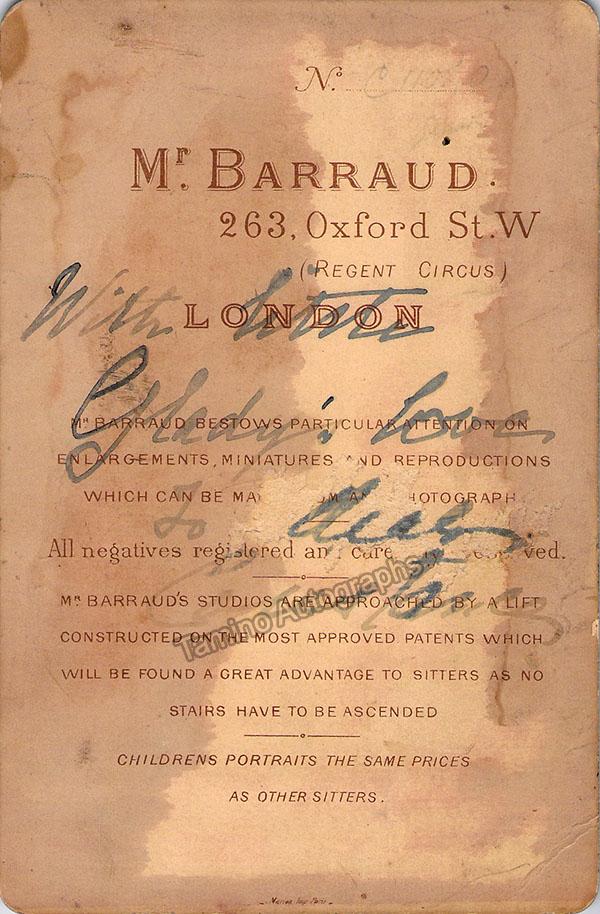 No.
Mr. BARRAUD.
263, Oxford St. W
(REGENT CIRCUS)
With little
LONDON
Glady's love
MR BARRAUD BESTOWS PARTICULAR ATTENTION ON
ENLARGEMENTS, MINIATURES AND REPRODUCTIONS
WHICH CAN BE MA OM AN HOTOGRAPH
To dear
All negatives registered an care ved.
Tamino Autographs
MR BARRAUD'S STUDIOS ARE APPROACHED BY A LIFT
CONSTRUCTED ON THE MOST APPROVED PATENTS WHICH
WILL BE FOUND A GREAT ADVANTAGE TO SITTERS AS NO
STAIRS HAVE TO BE ASCENDED
CHILDRENS PORTRAITS THE SAME PRICES
AS OTHER SITTERS.
Marion Imp. Paris